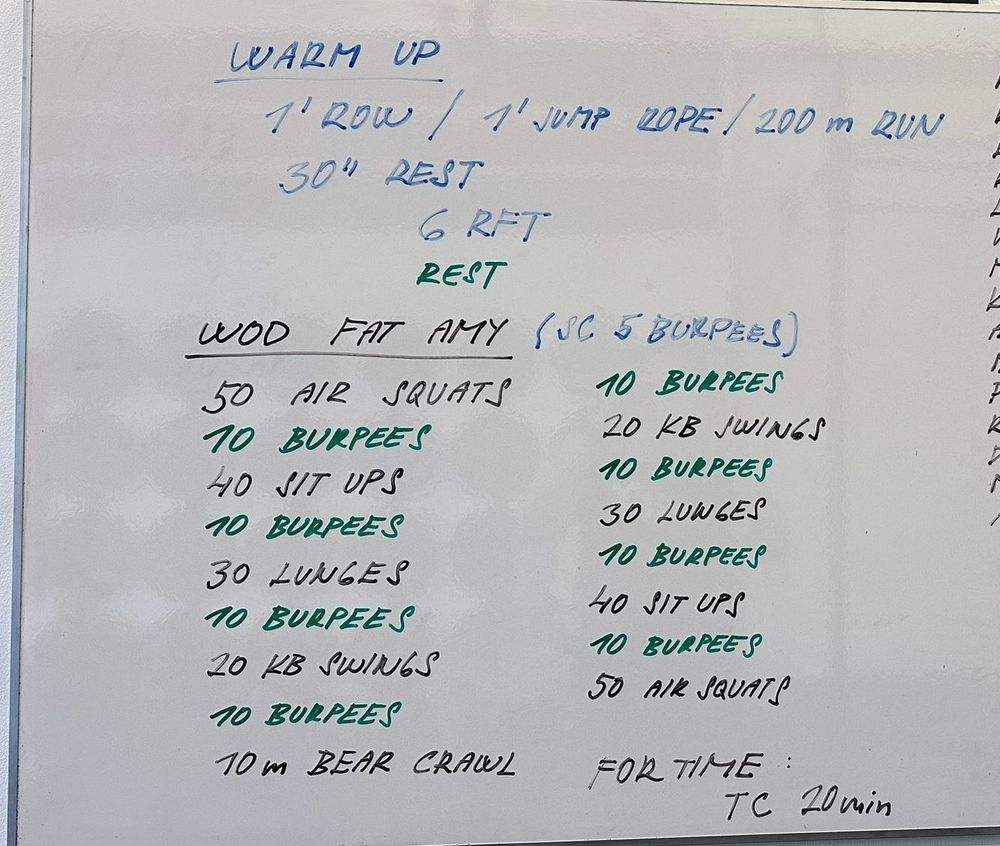 WARM UP
1' ROW / 1' JUMP ROPE / 200 m RUN
30" REST
6 RFT
REST
WOD FAT AMY (SC 5 BURPEES)
50 AIR SQUATS
10 BURPEES
40 SIT UPS
10 BURPEES
30 LUNGES
10 BURPEES
20 KB SWINGS
10 BURPEES
10m BEAR CRAWL
10 BURPEES
20 KB SWINGS
10 BURPEES
30 LUNGES
10 BURPEES
40 SIT UPS
10 BURPEES
50 AIR SQUATS
FOR TIME :
TC 20min